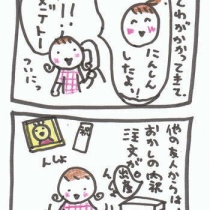 んわがかかってきて、
にんしん
したよ!
!!
メデトー
ついにっ
他の友人からは、
おかしの内祝
注文が。
出産
祝
んしょ